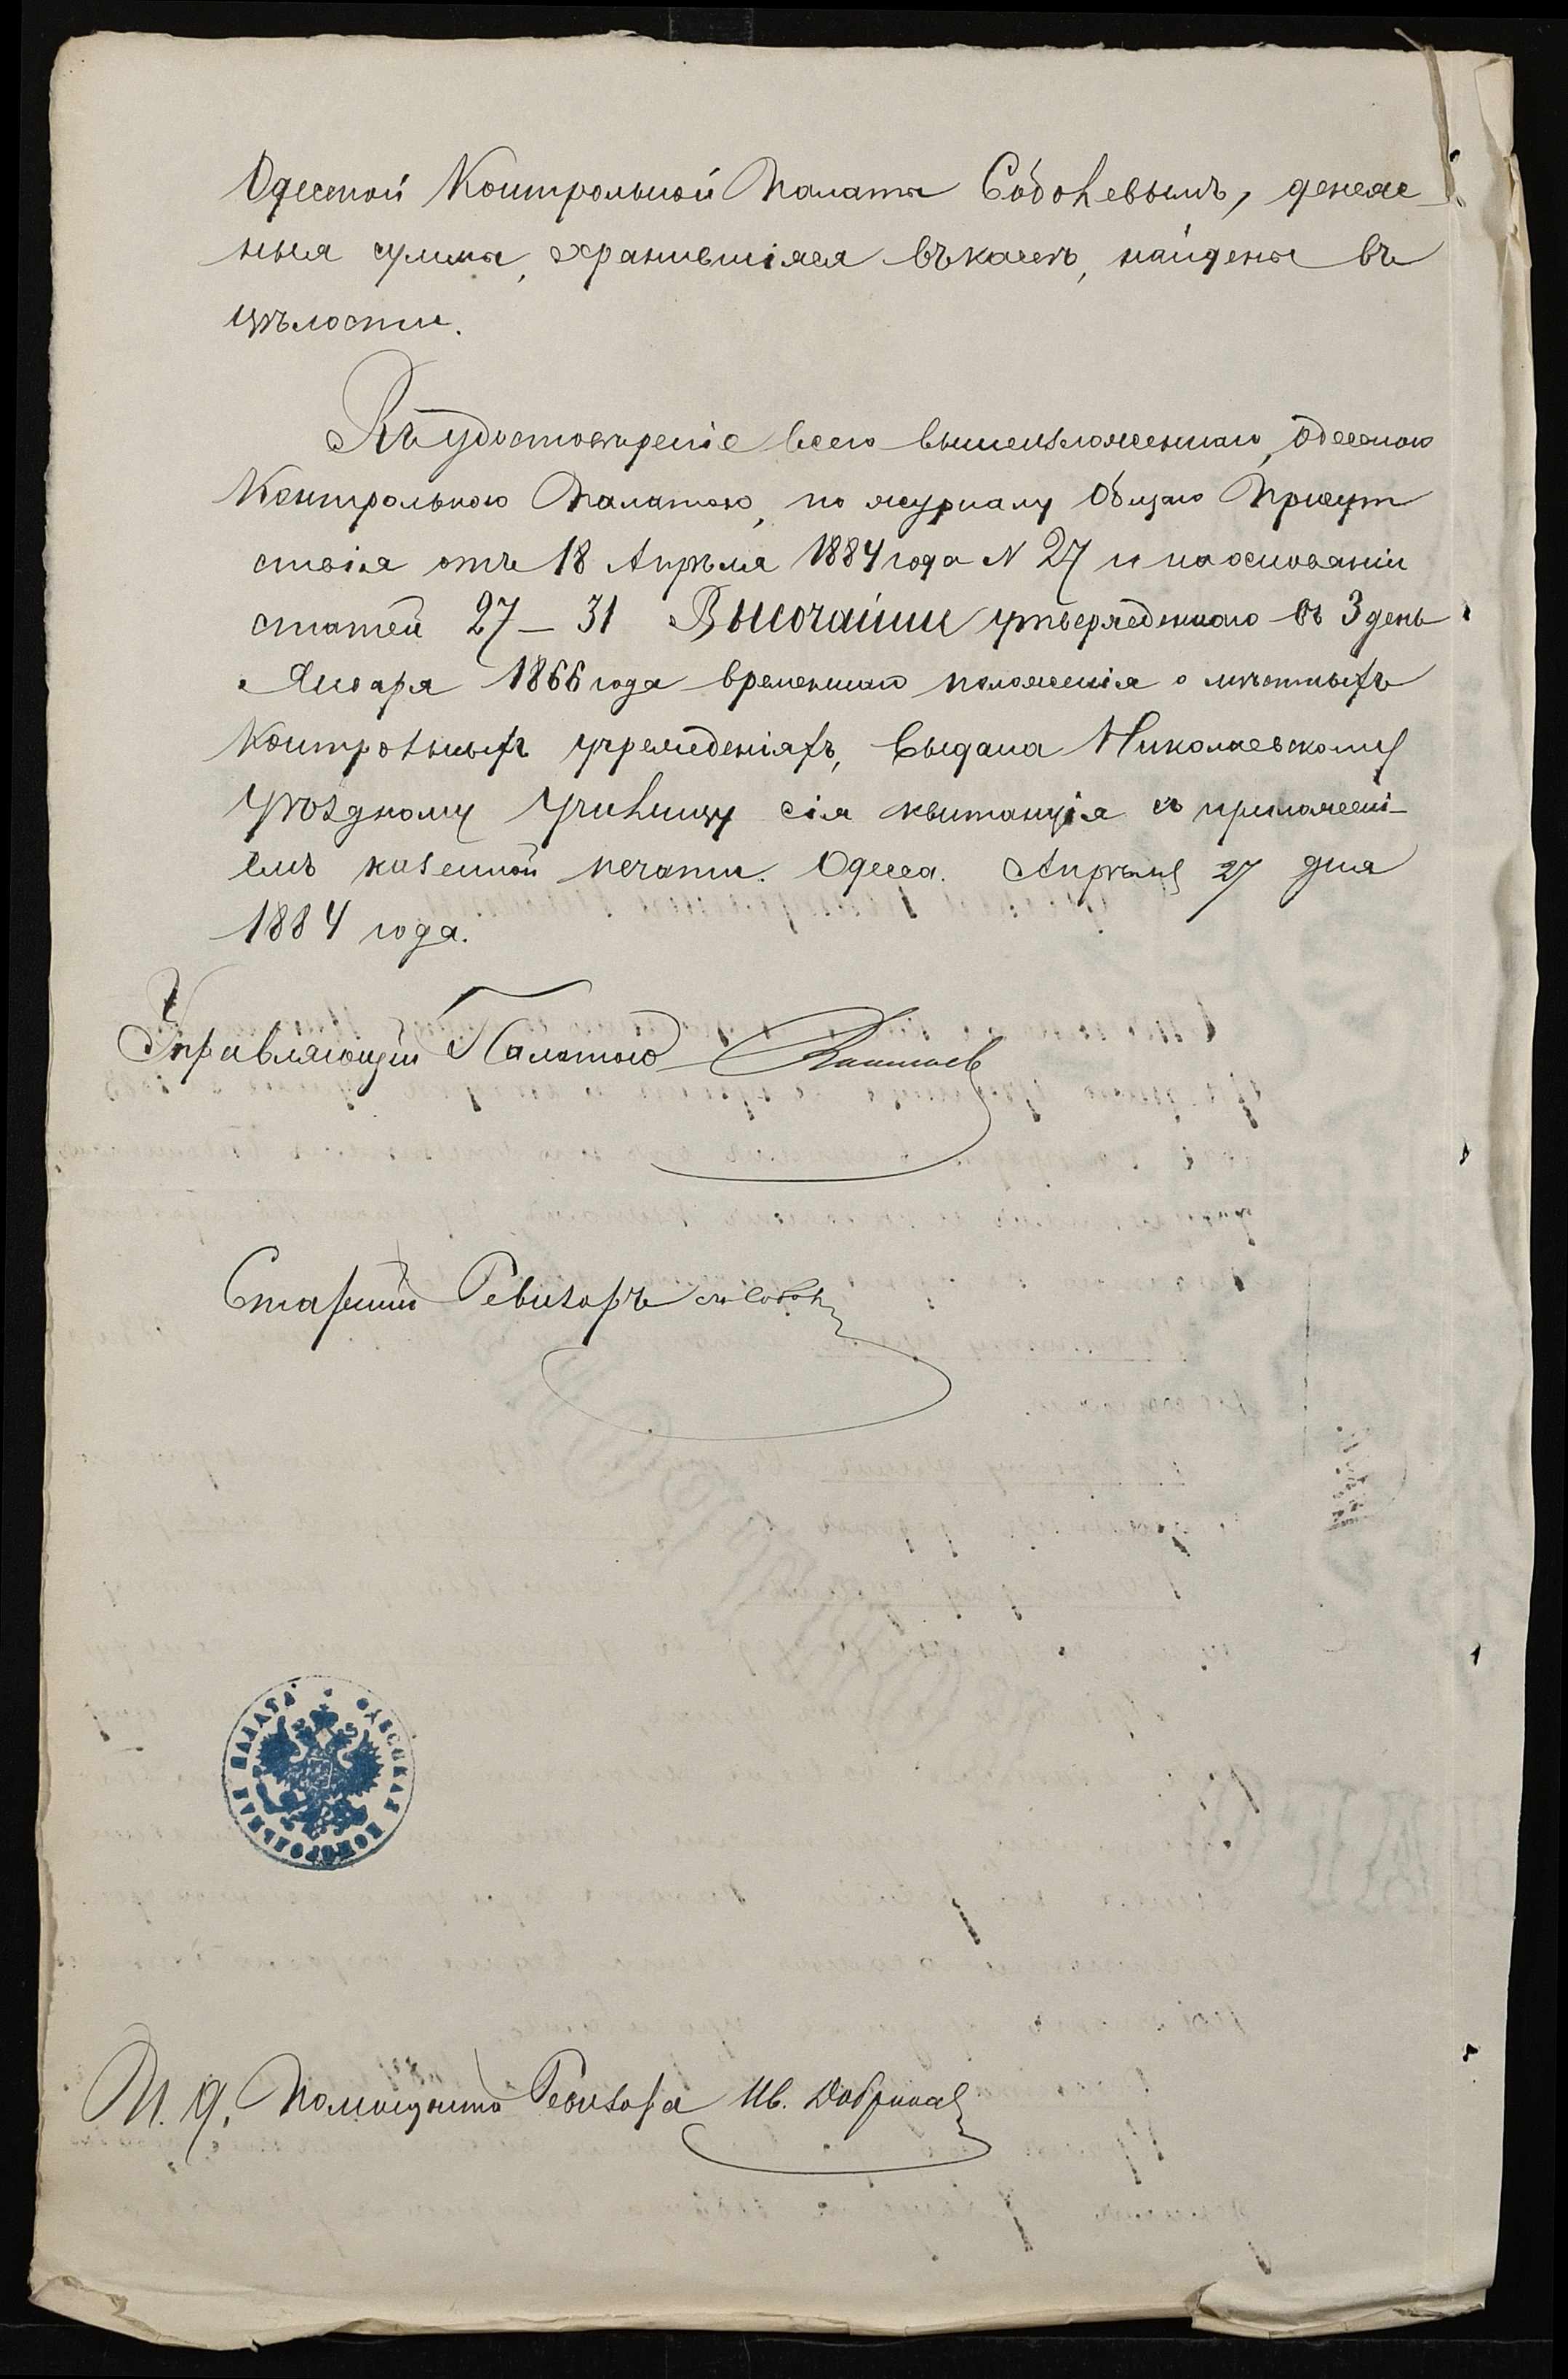 Одесской Контрольной Палаты Соболевымъ, денеж-
ныя суммы, хранившіяся въ кассѣ, найдены въ
цѣлости.
Въ удостовѣреніе всего вышеизложеннаго, Одесскою
Контрольною Палатою, по журналу Общаго Присут
ствія отъ 18 Апрѣля 1884 года N 27 и на основаніи
статей 27 – 31 Высочайше утвержденнаго въ 3 день
Января 1866 года временнаго положенія о мѣстныхъ
контрольныхъ учрежденіяхъ, выдана Николаевскому
Уѣздному Училищу сія квитанція съ приложені-
емъ казенной печати. Одесса. Апрѣля 27 дня
1884 года.
Управляющій Палатою
Старшій Ревизоръ
ОДЕССКАЯ КОНТРОЛЬНАЯ ПАЛАТА
И. д. Помощника Ревизора Ив.